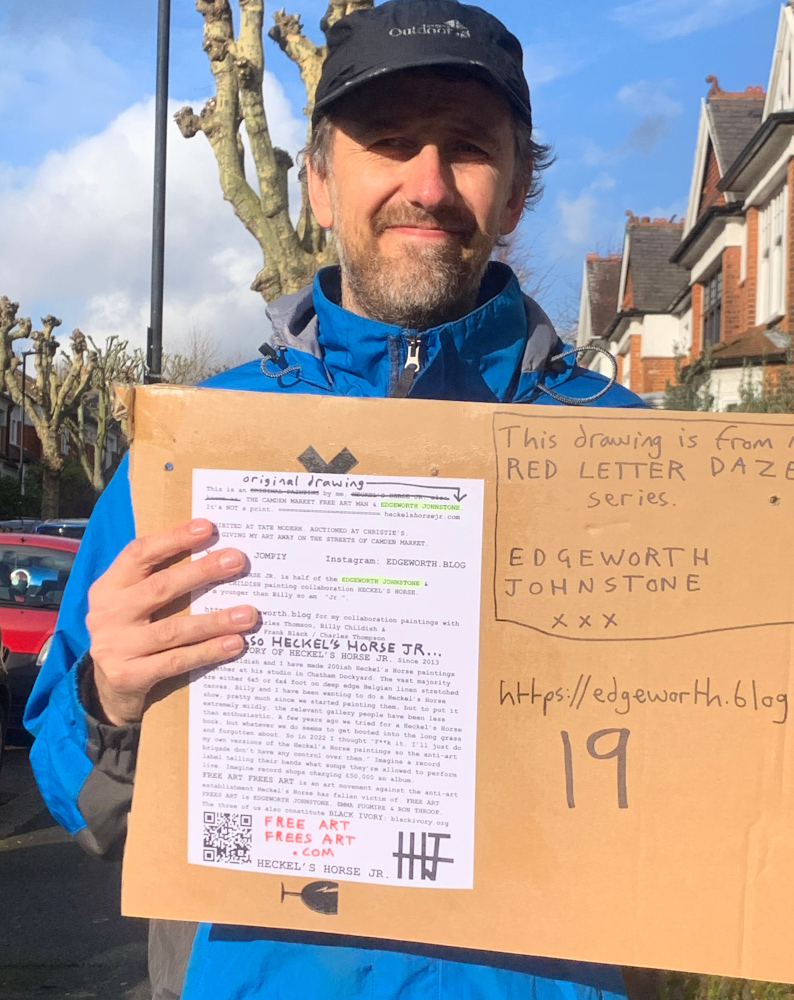 Outdoor
original drawing
This is an ORIGINAL PAINTING by me. HECKEL'S HORSE JR. also
known as. THE CAMDEN MARKET FREE ART MAN & EDGEWORTH JOHNSTONE.
It's NOT a print. heckelshorsejr.com
EXHIBITED AT TATE MODERN. AUCTIONED AT CHRISTIE'S.
GIVING MY ART AWAY ON THE STREETS OF CAMDEN MARKET.
JOMPIY Instagram: EDGEWORTH.BLOG
JR. is half of the EDGEWORTH JOHNSTONE &
CHILDISH painting collaboration HECKEL'S HORSE.
younger than Billy so am "Jr.".
edgeworth.blog for my collaboration paintings with
Charles Thomson, Billy Childish &
Frank Black / Charles Thompson
ALSO HECKEL'S HORSE JR...
STORY OF HECKEL'S HORSE JR. Since 2013
Childish and I have made 200ish Heckel's Horse paintings
together at his studio in Chatham Dockyard. The vast majority
are either 6x5 or 6x4 foot on deep edge Belgian linen stretched
canvas. Billy and I have been wanting to do a Heckel's Horse
show, pretty much since we started painting them, but to put it
extremely mildly, the relevant gallery people have been less
than enthusiastic. A few years ago we tried for a Heckel's Horse
book, but whatever we do seems to get booted into the long grass
and forgotten about. So in 2022 I thought "F**k it. I'll just do
my own versions of the Heckel's Horse paintings so the anti-art
brigade don't have any control over them." Imagine a record
label telling their bands what songs they're allowed to perform
live. Imagine record shops charging £50,000 an album.
FREE ART FREES ART is an art movement against the anti-art
establishment Heckel's Horse has fallen victim of. FREE ART
FREES ART is EDGEWORTH JOHNSTONE, EMMA PUGMIRE & RON THROOP.
The three of us also constitute BLACK IVORY. blackivory.org
FREE ART
FREES ART
.COM
HECKEL'S HORSE JR.
This drawing is from
RED LETTER DAZE
series.
EDGEWORTH
JOHNSTONE
x x x
https://edgeworth.blog
19